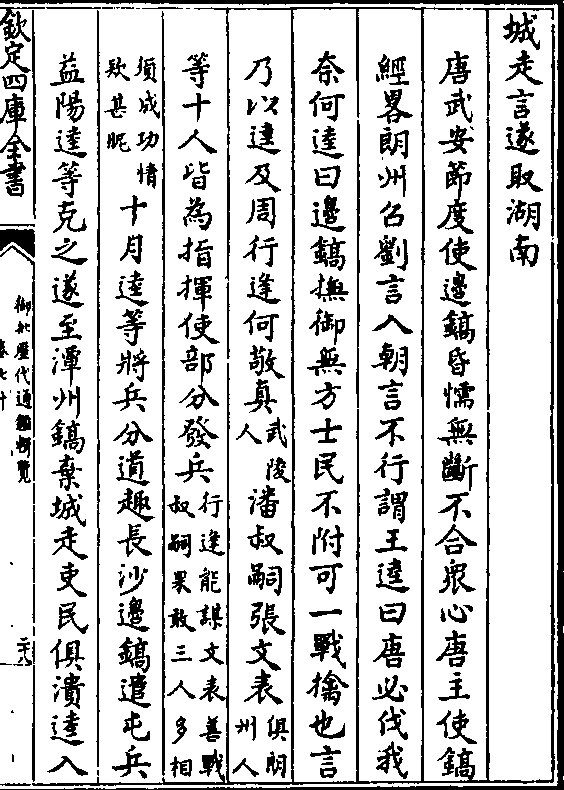 城走言遂取湖南
唐武安節度使邊鎬昏懦無斷不合衆心唐主使鎬
經畧朗州召劉言入朝言不行謂王逵曰唐必伐我
奈何逵曰邊鎬撫御無方士民不附可一戰擒也言
乃以逵及周行逢何敬真武陵人潘叔嗣張文表俱朗州人
等十人皆為指揮使部分發兵行逢能謀文表善戰叔嗣果敢三人多相
須成功情欵甚昵十月逵等將兵分道趣長沙邊鎬遣屯兵
益陽逵等克之遂至潭州鎬棄城走吏民俱潰逵入
欽定四庫全書
御批歷代通鑑輯覽
卷七十
二十八